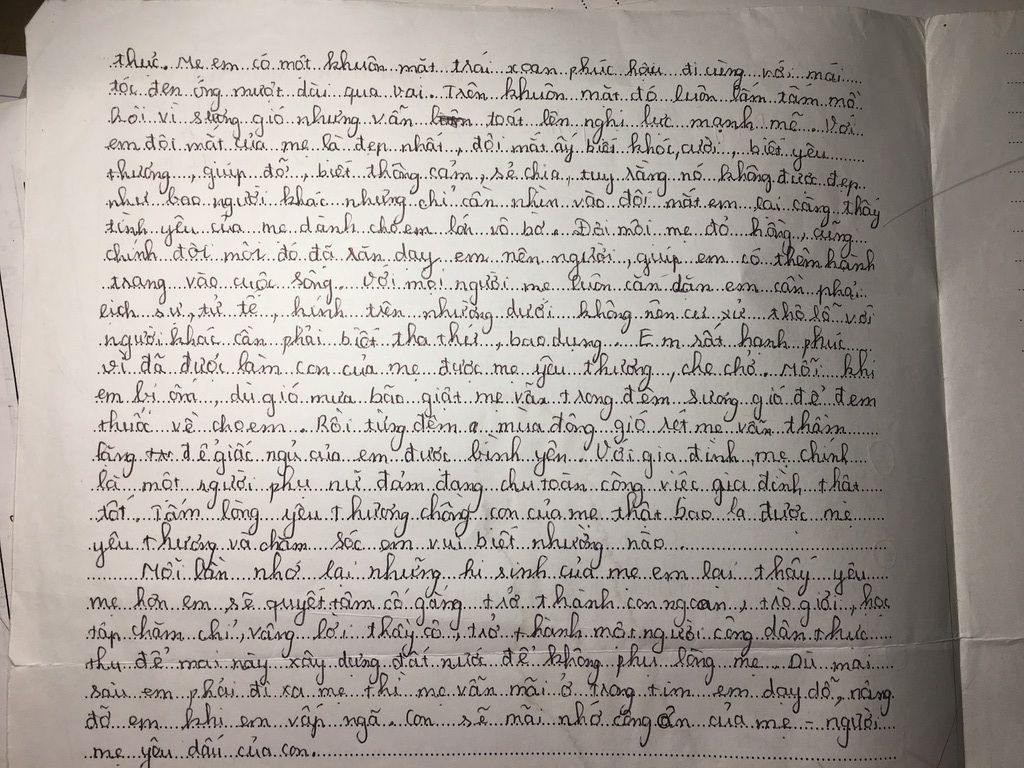 thức. Mẹ em có một khuôn mặt trái xoan phúc hậu đi cùng với mái
tóc đen óng mượt dài qua vai. Trên khuôn mặt đó luôn lấm tấm mồ
hôi vì sương gió nhưng vẫn toát lên nghị lực mạnh mẽ. Với
em đôi mắt của mẹ là đẹp nhất, đôi mắt ấy biết khóc, cười, biết yêu
thương, giúp đỡ, biết thông cảm, sẻ chia, tuy rằng nó không được đẹp
như bao người khác nhưng chỉ cần nhìn vào đôi mắt em lại càng thấy
tình yêu của mẹ dành cho em lớn vô bờ. Đôi môi mẹ đỏ hồng, cũng
chính đôi môi đó đã răn dạy em nên người, giúp em có thêm hành
trang vào cuộc sống. Với mọi người mẹ luôn căn dặn em cần phải
lịch sự, tử tế, kính trên nhường dưới không nên cư xử thô lỗ với
người khác cần phải biết tha thứ, bao dung. Em rất hạnh phúc
vì đã được làm con của mẹ được mẹ yêu thương, che chở. Mỗi khi
em bị ốm, dù gió mưa bão giật mẹ vẫn trong đêm sương gió để đem
thuốc về cho em. Rồi từng đêm mùa đông gió rét mẹ vẫn thầm
lặng để giấc ngủ của em được bình yên. Với gia đình, mẹ chính
là một người phụ nữ đảm đang chu toàn công việc gia đình thật
tốt. Tấm lòng yêu thương chồng con của mẹ thật bao la được mẹ
yêu thương và chăm sóc em vui biết nhường nào.
Mỗi lần nhớ lại những hi sinh của mẹ em lại thấy yêu
mẹ hơn em sẽ quyết tâm cố gắng trở thành con ngoan, trò giỏi, học
tập chăm chỉ, vâng lời thầy cô, trở thành một người công dân thực
thụ để mai này xây dựng đất nước để không phụ lòng mẹ. Dù mai
sau em phải đi xa mẹ thì mẹ vẫn mãi ở trong tim em dạy dỗ, nâng
đỡ em khi em vấp ngã. Con sẽ mãi nhớ công ơn của mẹ - người
mẹ yêu dấu của con.